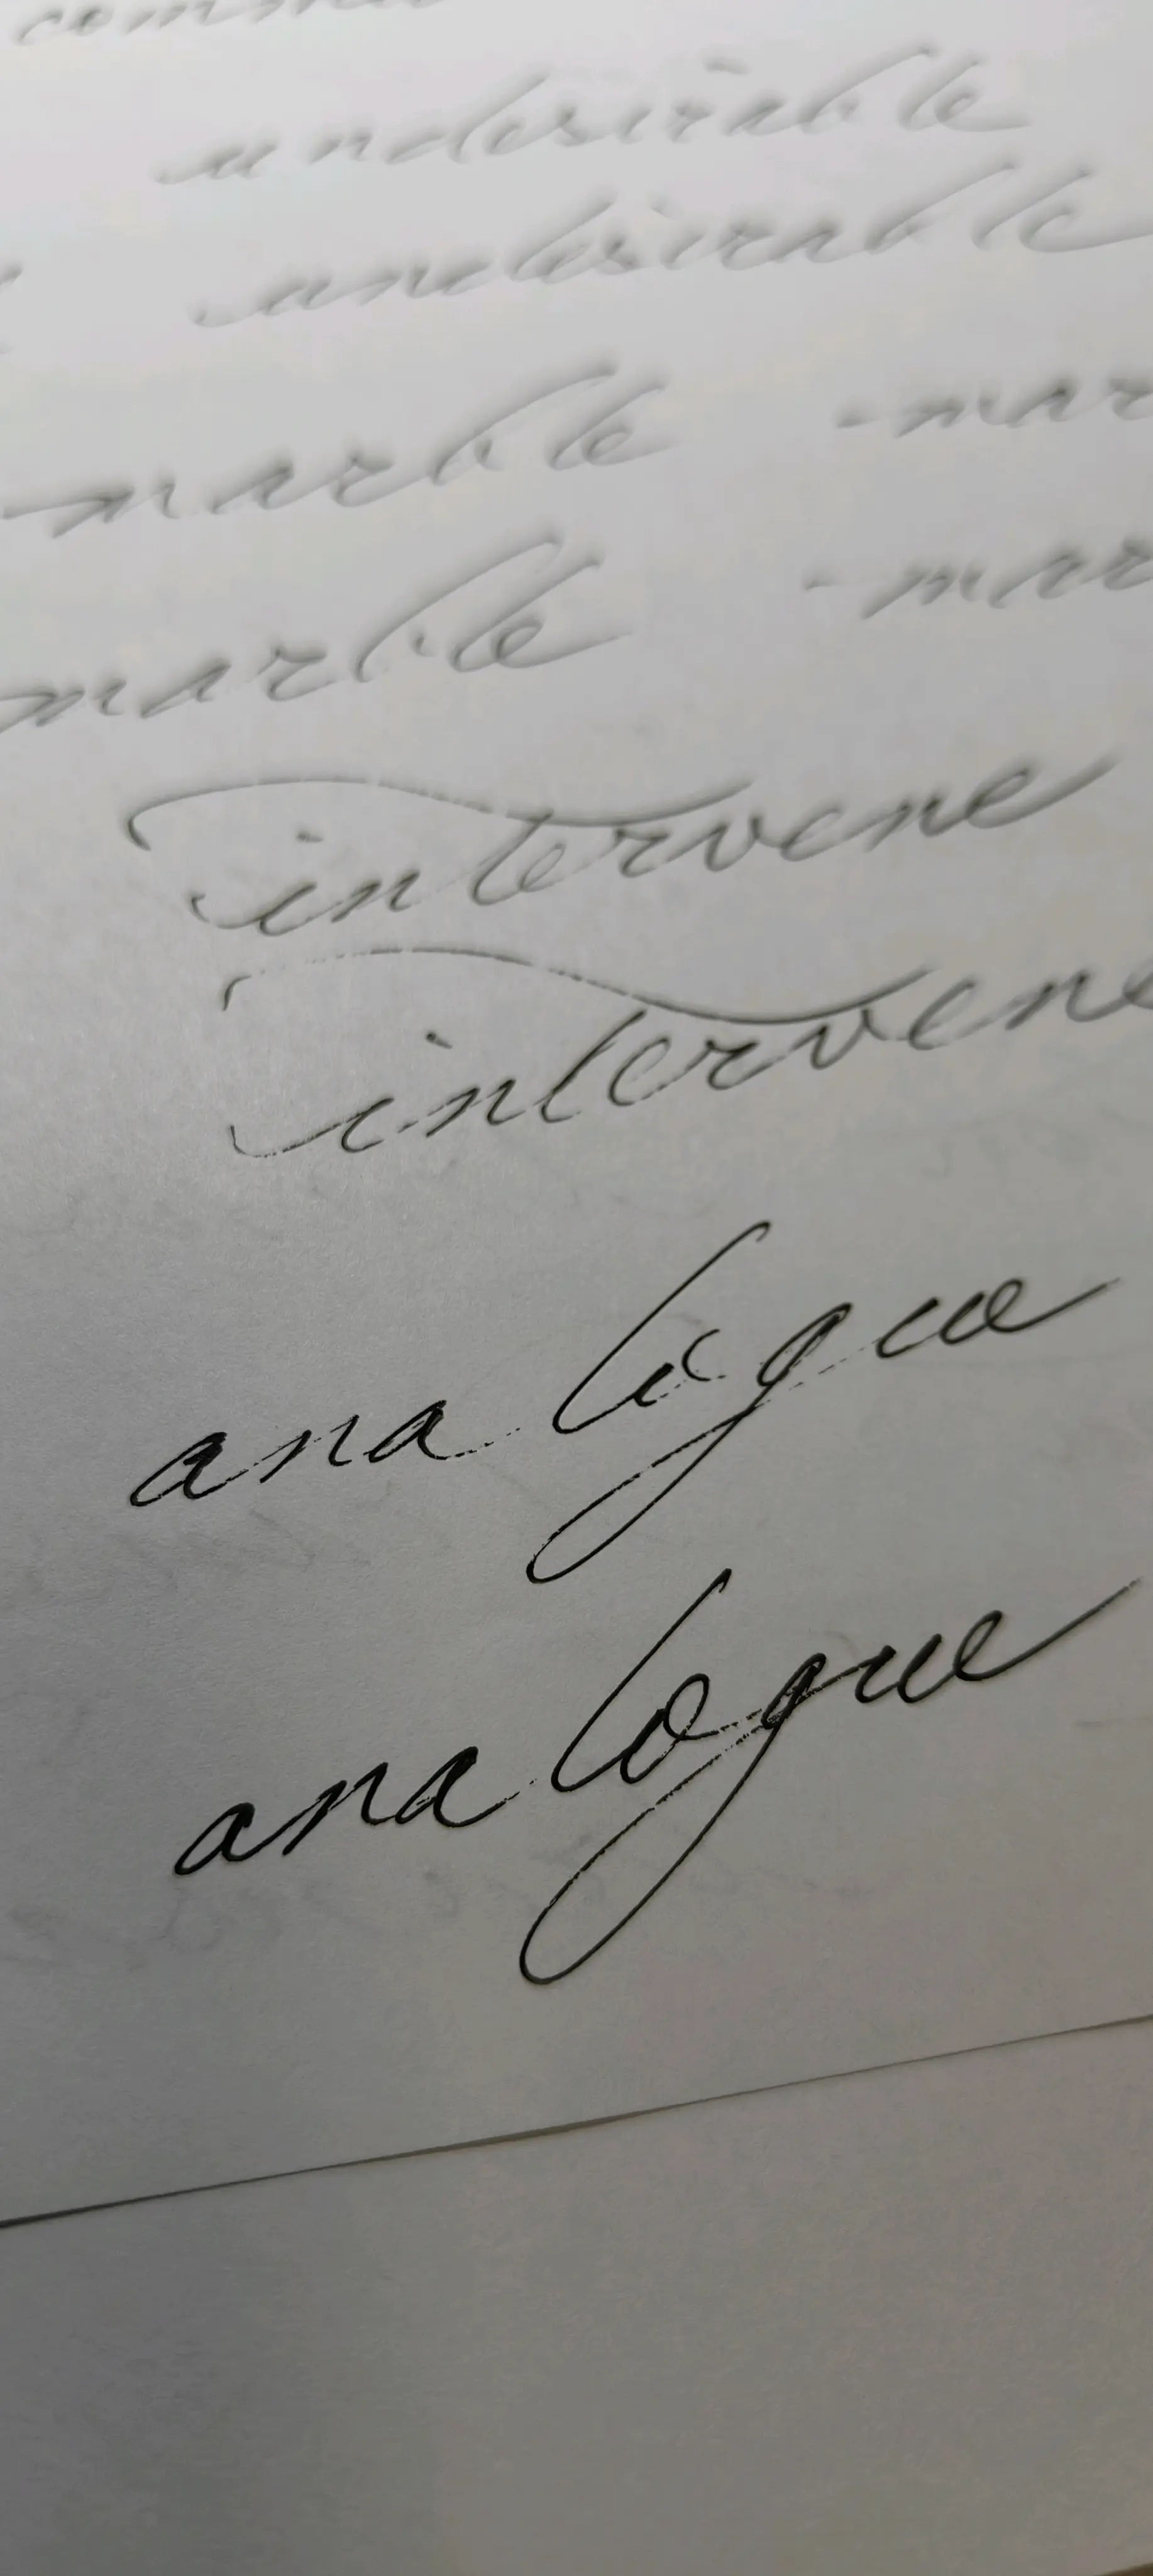 undesirable
undesirable
marble mar
marble mar
intervene
intervene
analogue
analogue